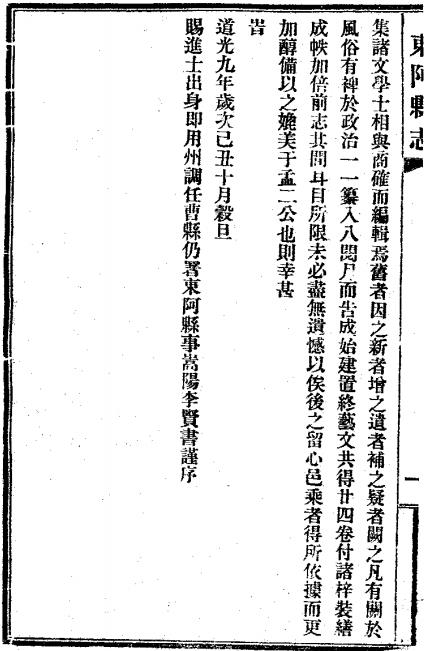 東阿縣志
集諸文學士相與商確而編輯焉舊者因之新者增之遺者補之疑者闕之凡有關於
風俗有裨於政治一一纂入八閱月而告成始建置終藝文共得廿四卷付諸梓裝繕
成帙加倍前志其間耳目所限未必盡無遺憾以俟後之留心邑乘者得所依據而更
加醇備以之媲美于孟二公也則幸甚
旹
道光九年歲次己丑十月穀旦
賜進士出身即用州調任曹縣仍署東阿縣事嵩陽李賢書謹序
一